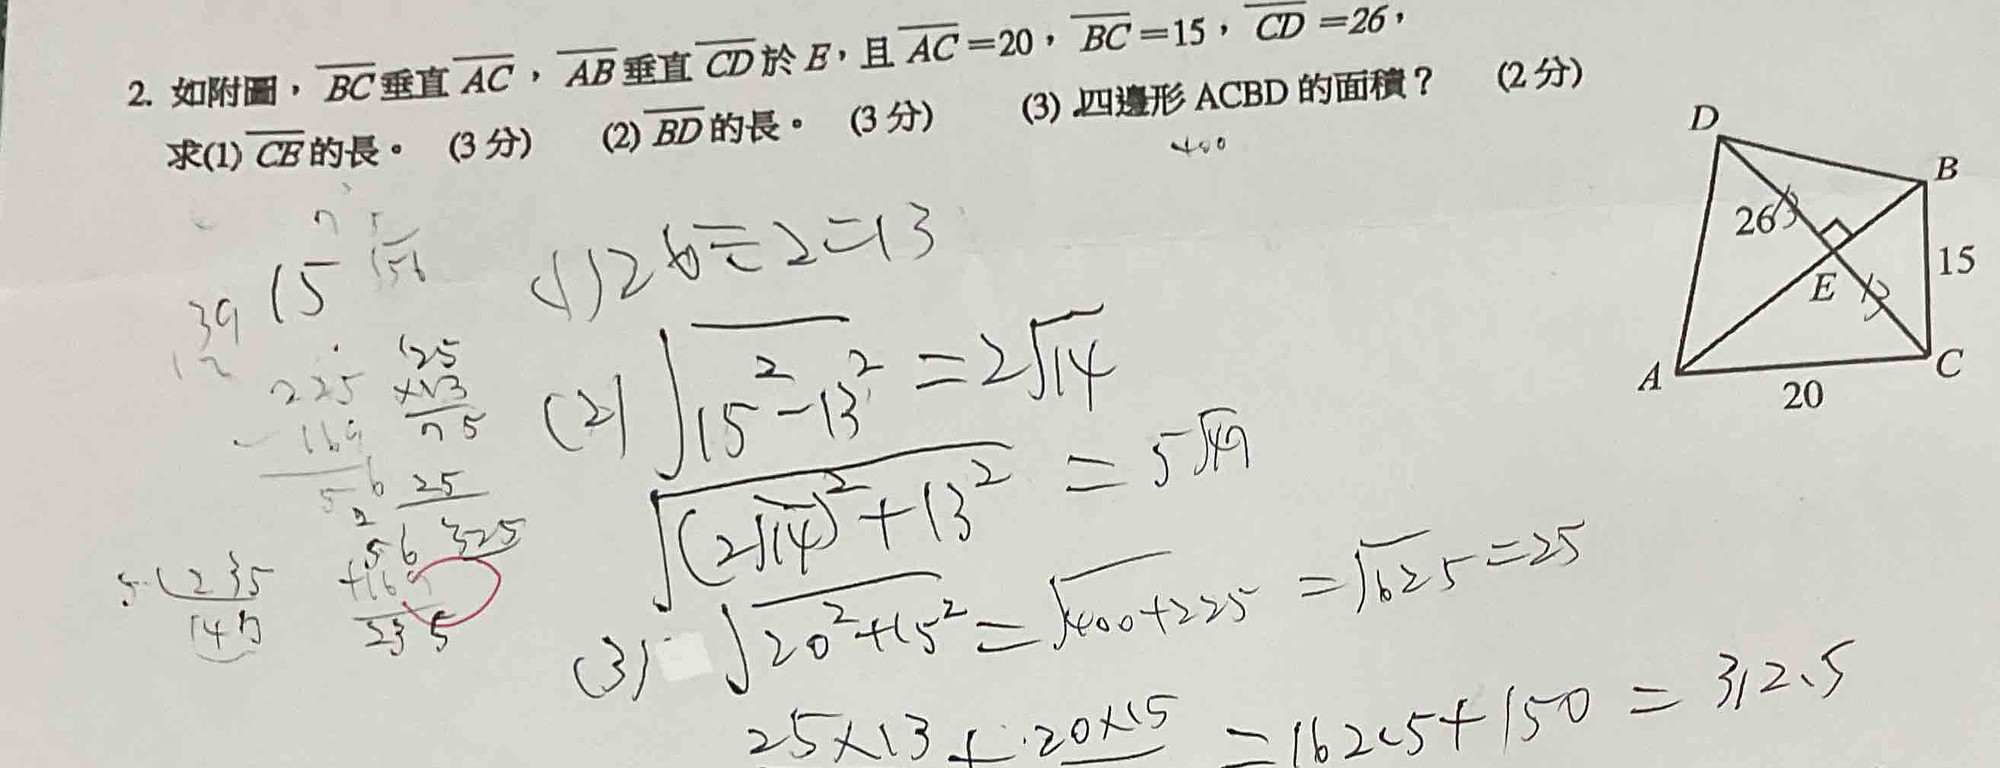 2. 如附圖，BC垂直AC，AB垂直CD於E，且AC=20，BC=15，CD=26，
求(1) CE的長。 (3分) (2) BD的長。 (3分) (3) 四邊形 ACBD 的面積？ (2分)
400
D
B
26
15
E
A
C
20
13
13
(1) 26÷2=13
(2) √15²-13² = 2√14
√(2√14)²+13² = 5√49
(3) √20²+15² = √400+225 = √625 = 25
25×13 + 20×15 = 162.5+150 = 312.5
15
156
39
12
225
-169
56
125
×13
75
25
325
56
+169
235
5 235
47